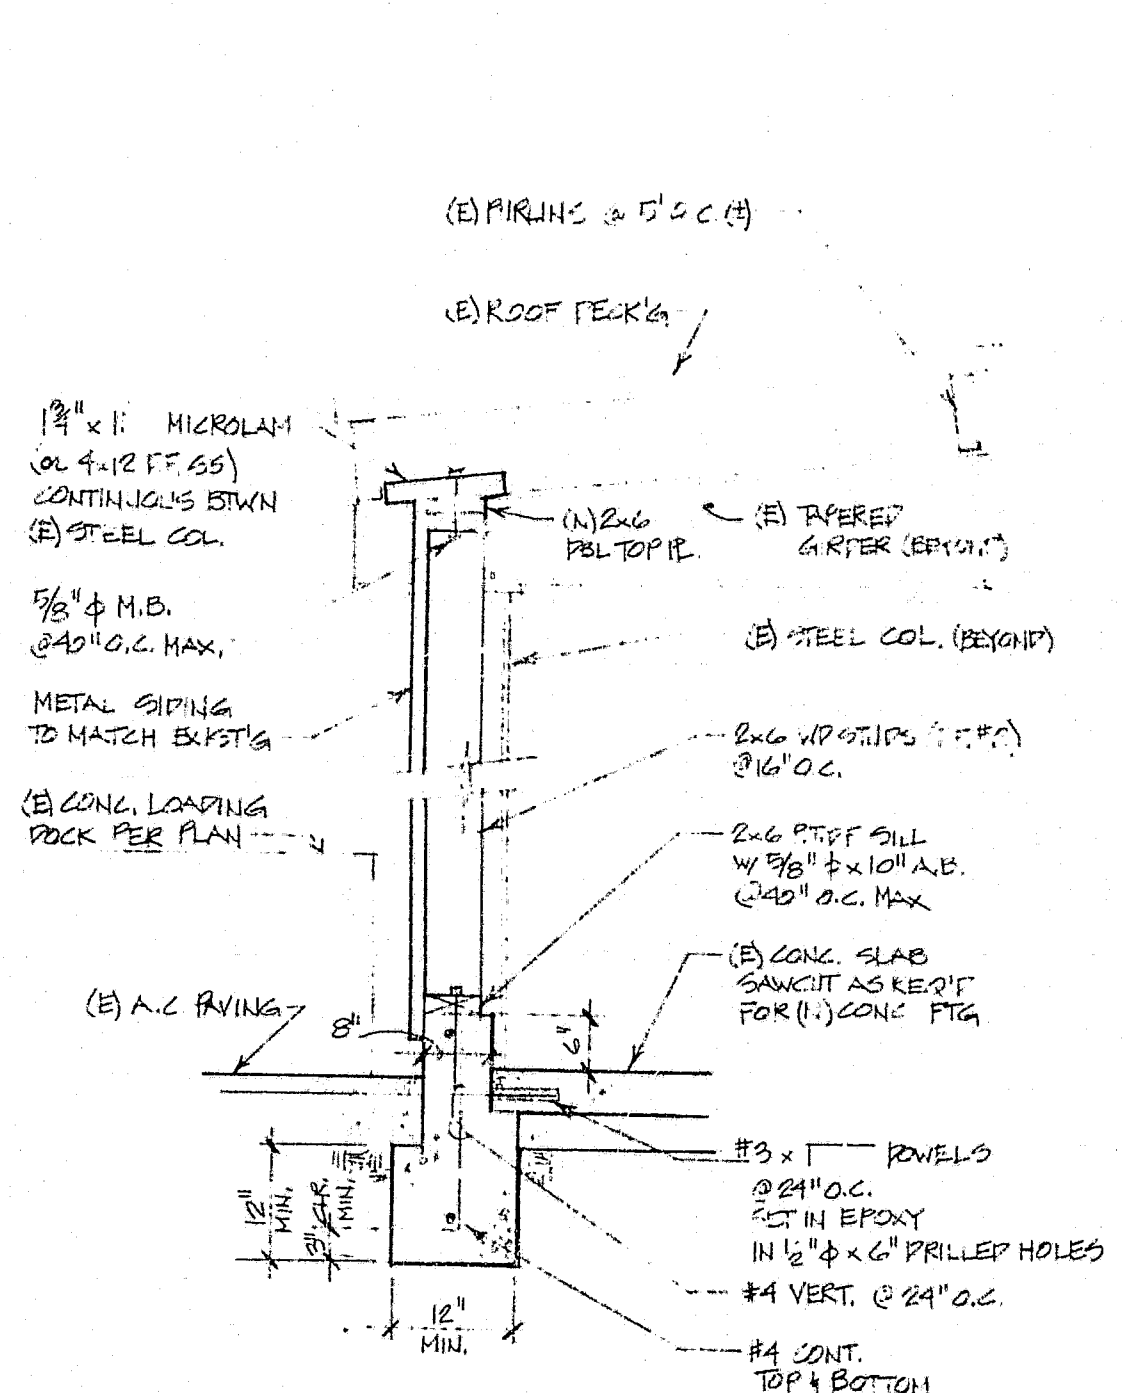 (E) PURLINS @ 5' O.C. (±)
(E) ROOF DECK'G
1¾" x MICROLAM
(OR 4x12 D.F. SS)
CONTINUOUS BTWN
(E) STEEL COL.
5/8" φ M.B.
@ 40" O.C. MAX.
METAL SIDING
TO MATCH EXIST'G
(E) CONC. LOADING
DOCK PER PLAN
(E) A.C PAVING
(N) 2x6
DBL TOP PL.
(E) TAPERED
GIRDER (BEYOND)
(E) STEEL COL. (BEYOND)
2x6 WD STUDS
@ 16" O.C.
2x6 P.T.D.F SILL
W/ 5/8" φ x 10" A.B.
@ 40" O.C. MAX
(E) CONC. SLAB
SAWCUT AS REQ'D
FOR (N) CONC FTG
8"
6"
12"
MIN.
3" CLR.
MIN.
12"
MIN.
#3 x DOWELS
@ 24" O.C.
SET IN EPOXY
IN ½" φ x 6" DRILLED HOLES
#4 VERT. @ 24" O.C.
#4 CONT.
TOP & BOTTOM